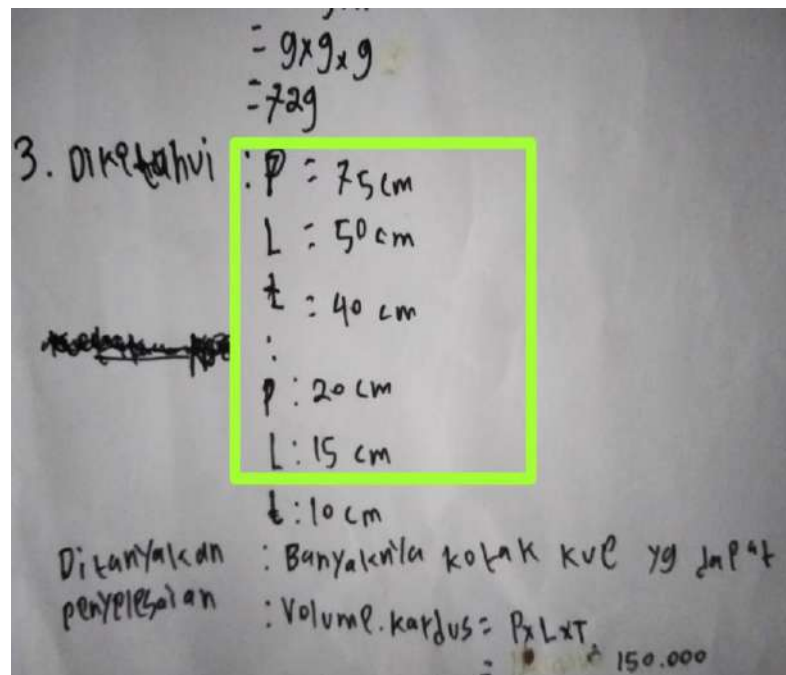 = 9x9x9
= 729
3. Diketahui : P = 75 cm
L = 50 cm
t = 40 cm
:
p : 20 cm
L : 15 cm
t : 10 cm
Ditanyakan : Banyaknya kotak kue yg dapat
penyelesaian : Volume.kardus = PxLxT
= 150.000